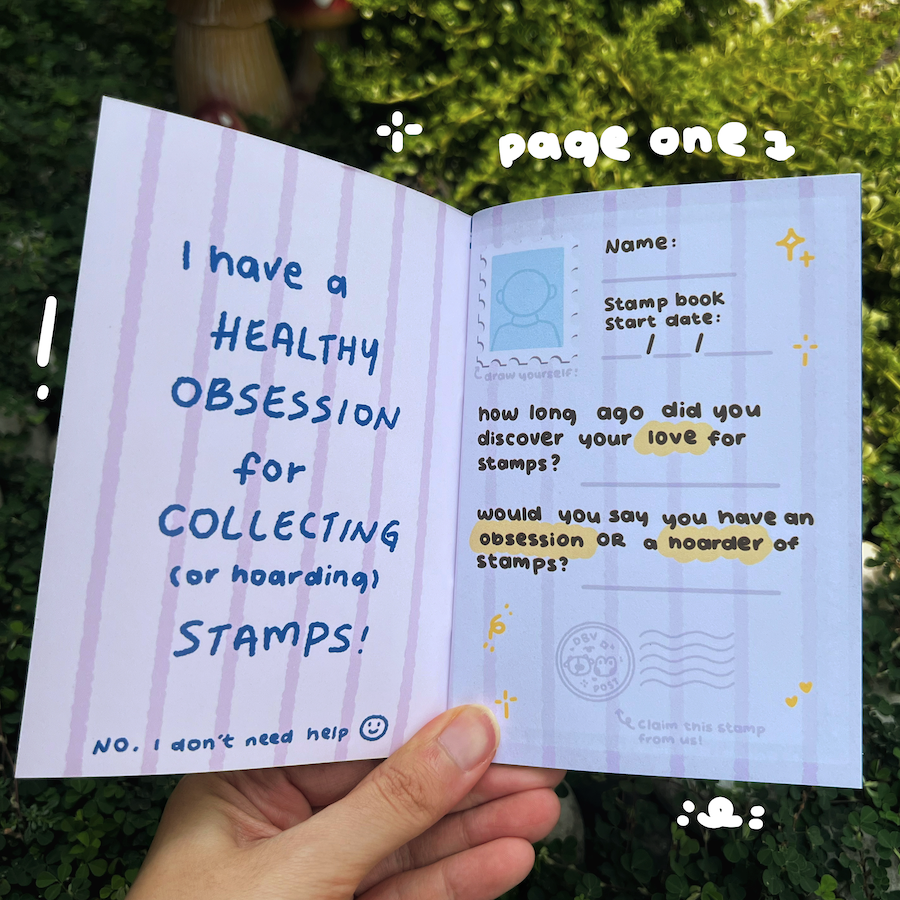 page one 1
!
I have a
HEALTHY
OBSESSION
for
COLLECTING
(or hoarding)
STAMPS!
NO. I don't need help
Name:
Stamp book
Start date:
/ /
draw yourself!
how long ago did you
discover your love for
stamps?
would you say you have an
obsession OR a hoarder of
stamps?
DBV
POST
Claim this stamp
from us!